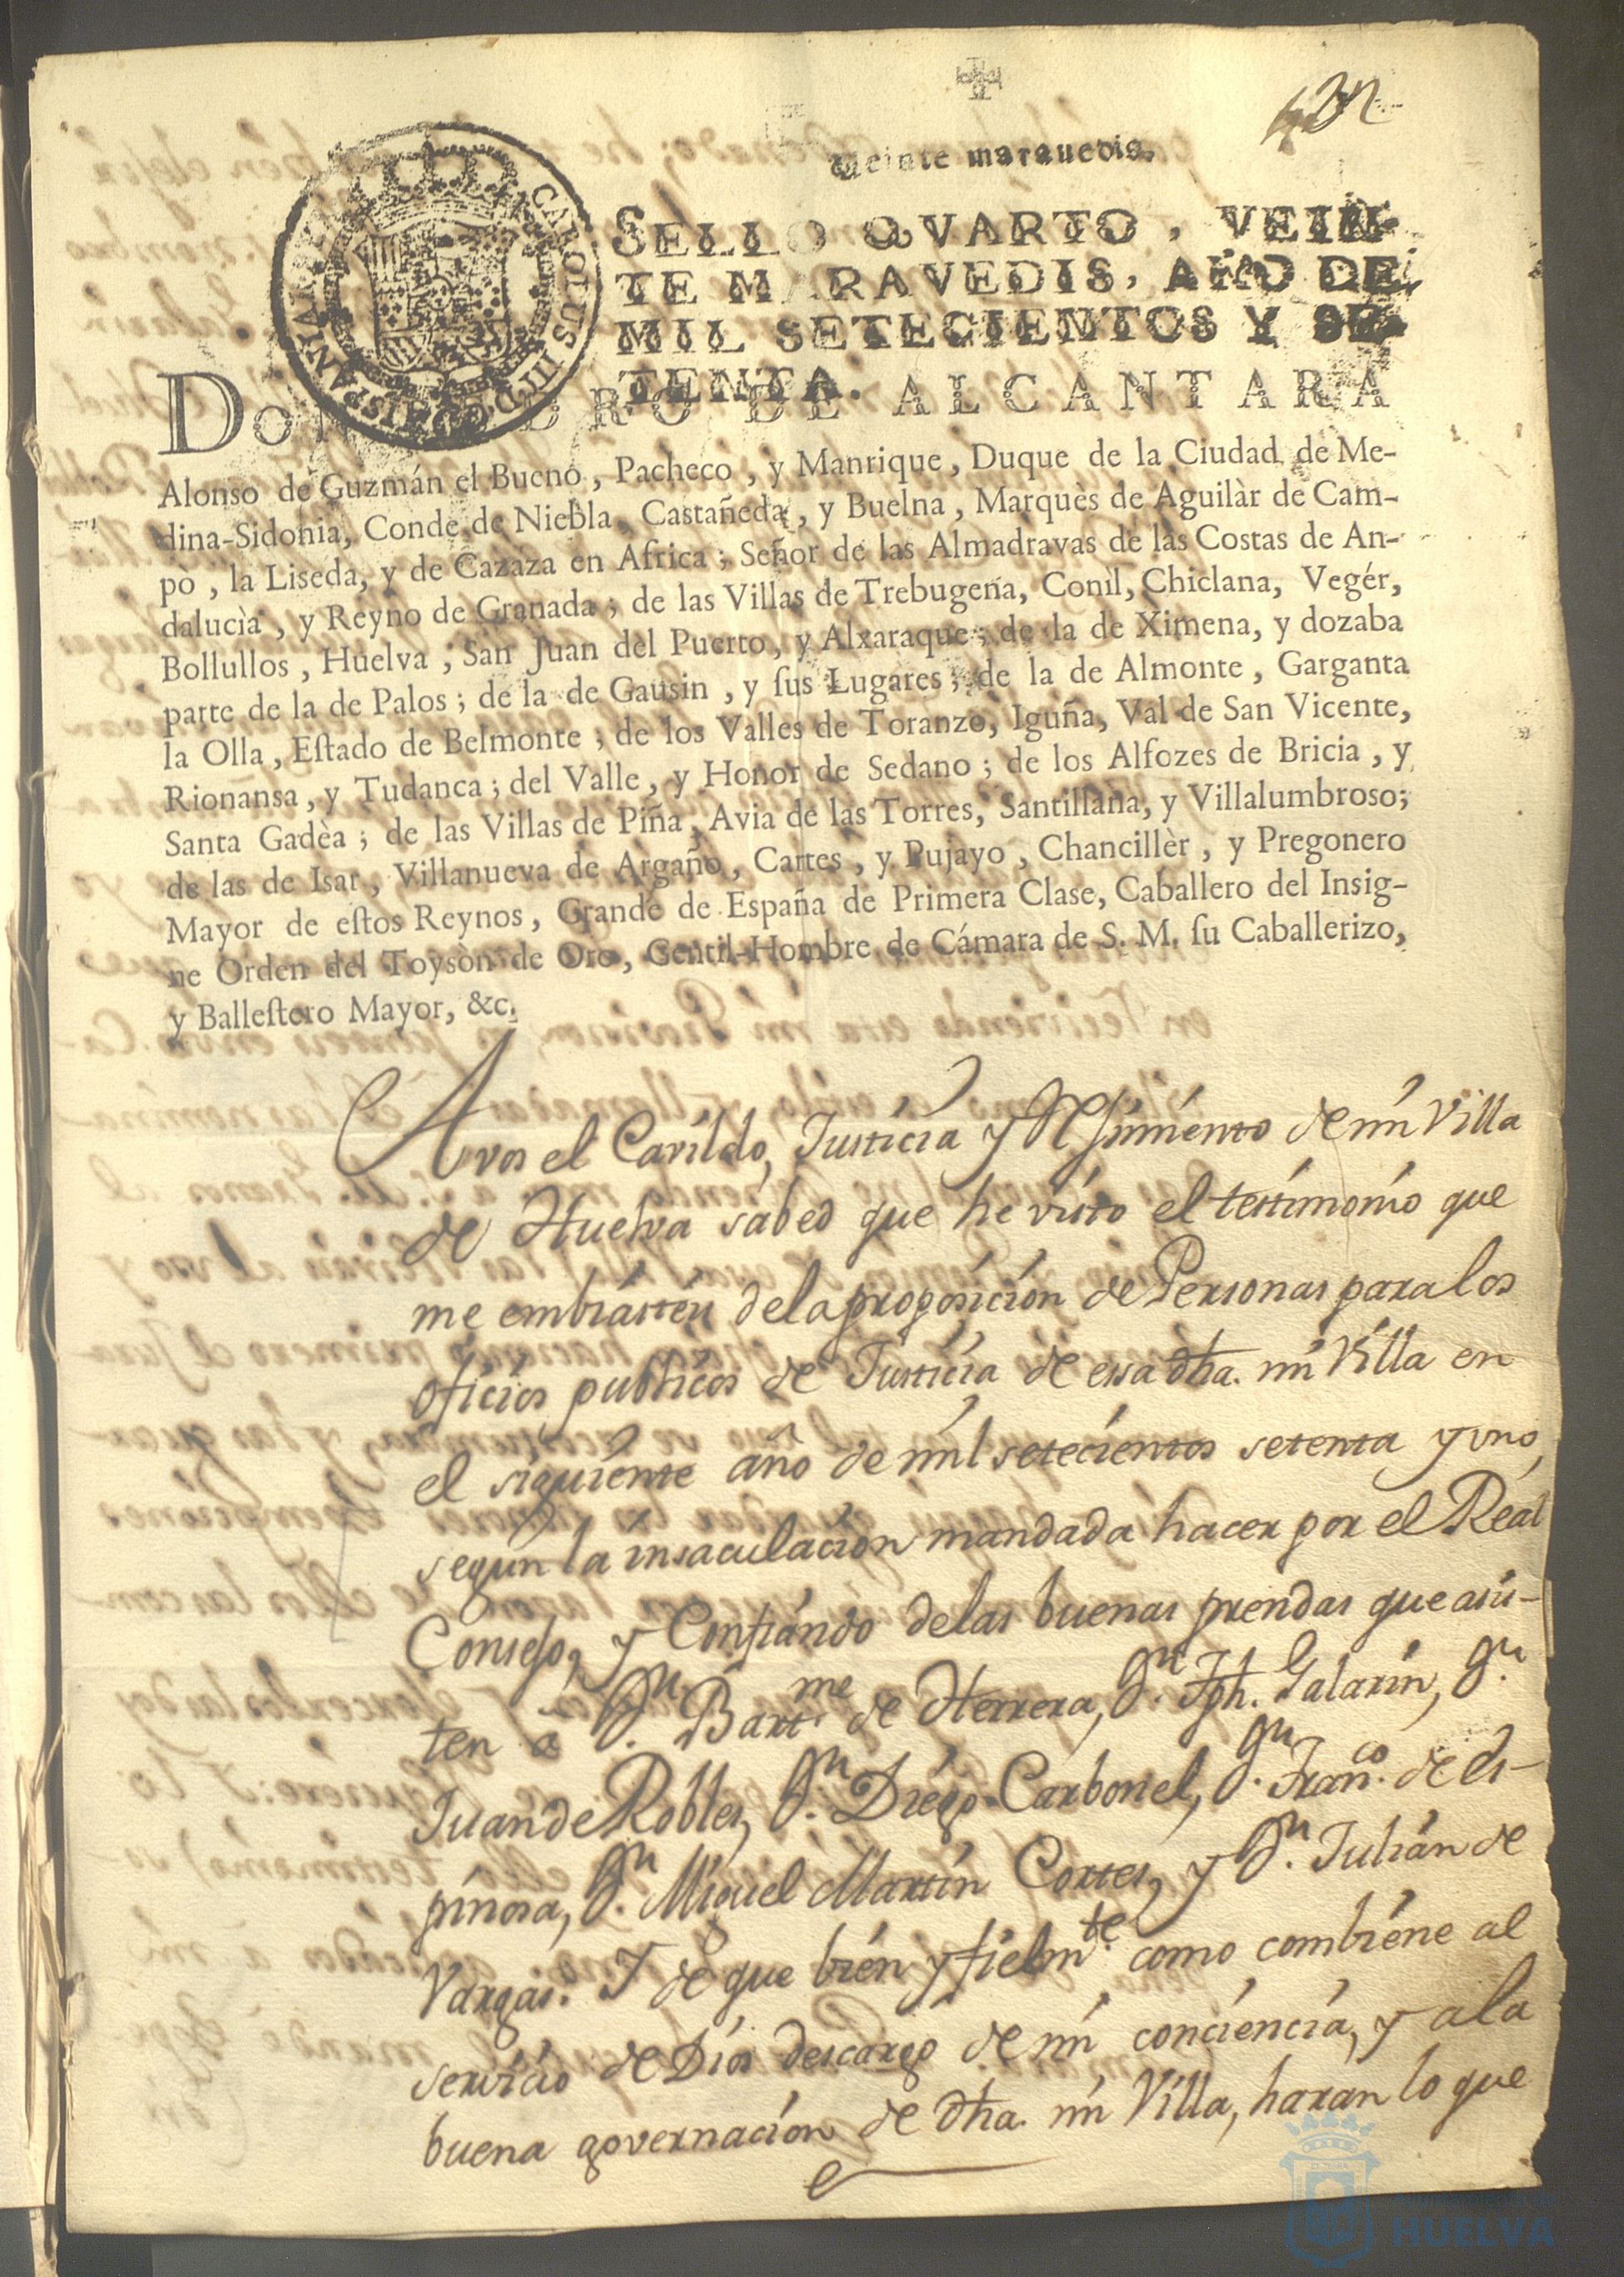 Veinte marauedis.
SELLO QVARTO, VEIN-
TE MARAVEDIS, AÑO DE
MIL SETECIENTOS Y SE-
TENTA.
CAROLUS III D. G. HISPANIAR
DON PEDRO DE ALCANTARA
Alonso de Guzmán el Bueno, Pacheco, y Manrique, Duque de la Ciudad de Me-
dina-Sidonia, Conde de Niebla, Castañeda, y Buelna, Marquès de Aguilàr de Cam-
pò, la Liseda, y de Cazaza en Africa; Señor de las Almadravas de las Costas de An-
dalucìa, y Reyno de Granada; de las Villas de Trebugena, Conil, Chiclana, Vegér,
Bollullos, Huelva, San Juan del Puerto, y Alxaraque; de la de Ximena, y dozaba
parte de la de Palos; de la de Gausin, y ſus Lugares; de la de Almonte, Garganta
la Olla, Eſtado de Belmonte; de los Valles de Toranzo, Iguña, Val de San Vicente,
Rionansa, y Tudanca; del Valle, y Honor de Sedano; de los Alfozes de Bricia, y
Santa Gadèa; de las Villas de Piña, Avia de las Torres, Santillana, y Villalumbroso;
de las de Isar, Villanueva de Argaño, Cartes, y Pujayo, Chancillèr, y Pregonero
Mayor de eſtos Reynos, Grande de España de Primera Clase, Caballero del Insig-
ne Orden del Toysòn de Oro, Gentil-Hombre de Cámara de S. M. ſu Caballerizo,
y Balleſtero Mayor, &c.
A vos el Cavildo, Justicia y Rejimiento de mi Villa
de Huelva sabed que he visto el testimonio que
me embiasteis de la proposicion de Personas para los
oficios publicos de Justicia de essa dha. mi Villa en
el siguiente año de mil setecientos setenta y uno,
segun la insaculacion mandada hacer por el Real
Consejo, y Confiando de las buenas prendas que asis-
ten a Dn. Bartme. de Herrera, Dn. Jph. Galarin, Dn.
Juan de Robles, Dn. Diego Carbonel, Dn. Franco. de Es-
pinosa, Dn. Miguel Martin Cortes, y Dn. Julian de
Vargas. Y de que bien y fielmte. como combiene al
servicio de Dios descargo de mi conciencia, y a la
buena governacion de dha. mi Villa, haran lo que
HUELVA